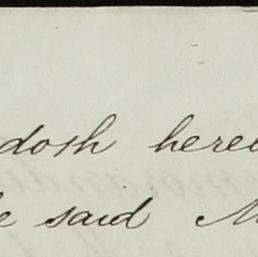 dosh here
e said M